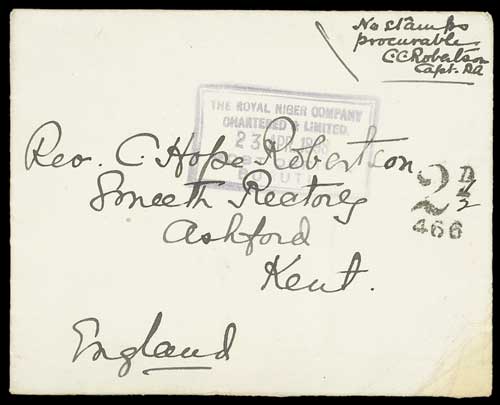 No stamps
procurable
C C Robertson
Capt. RA
THE ROYAL NIGER COMPANY
CHARTERED & LIMITED.
23 APR
Rev. C. Hope Robertson
Smeeth Rectory
Ashford
Kent.
England
2 D/½
466